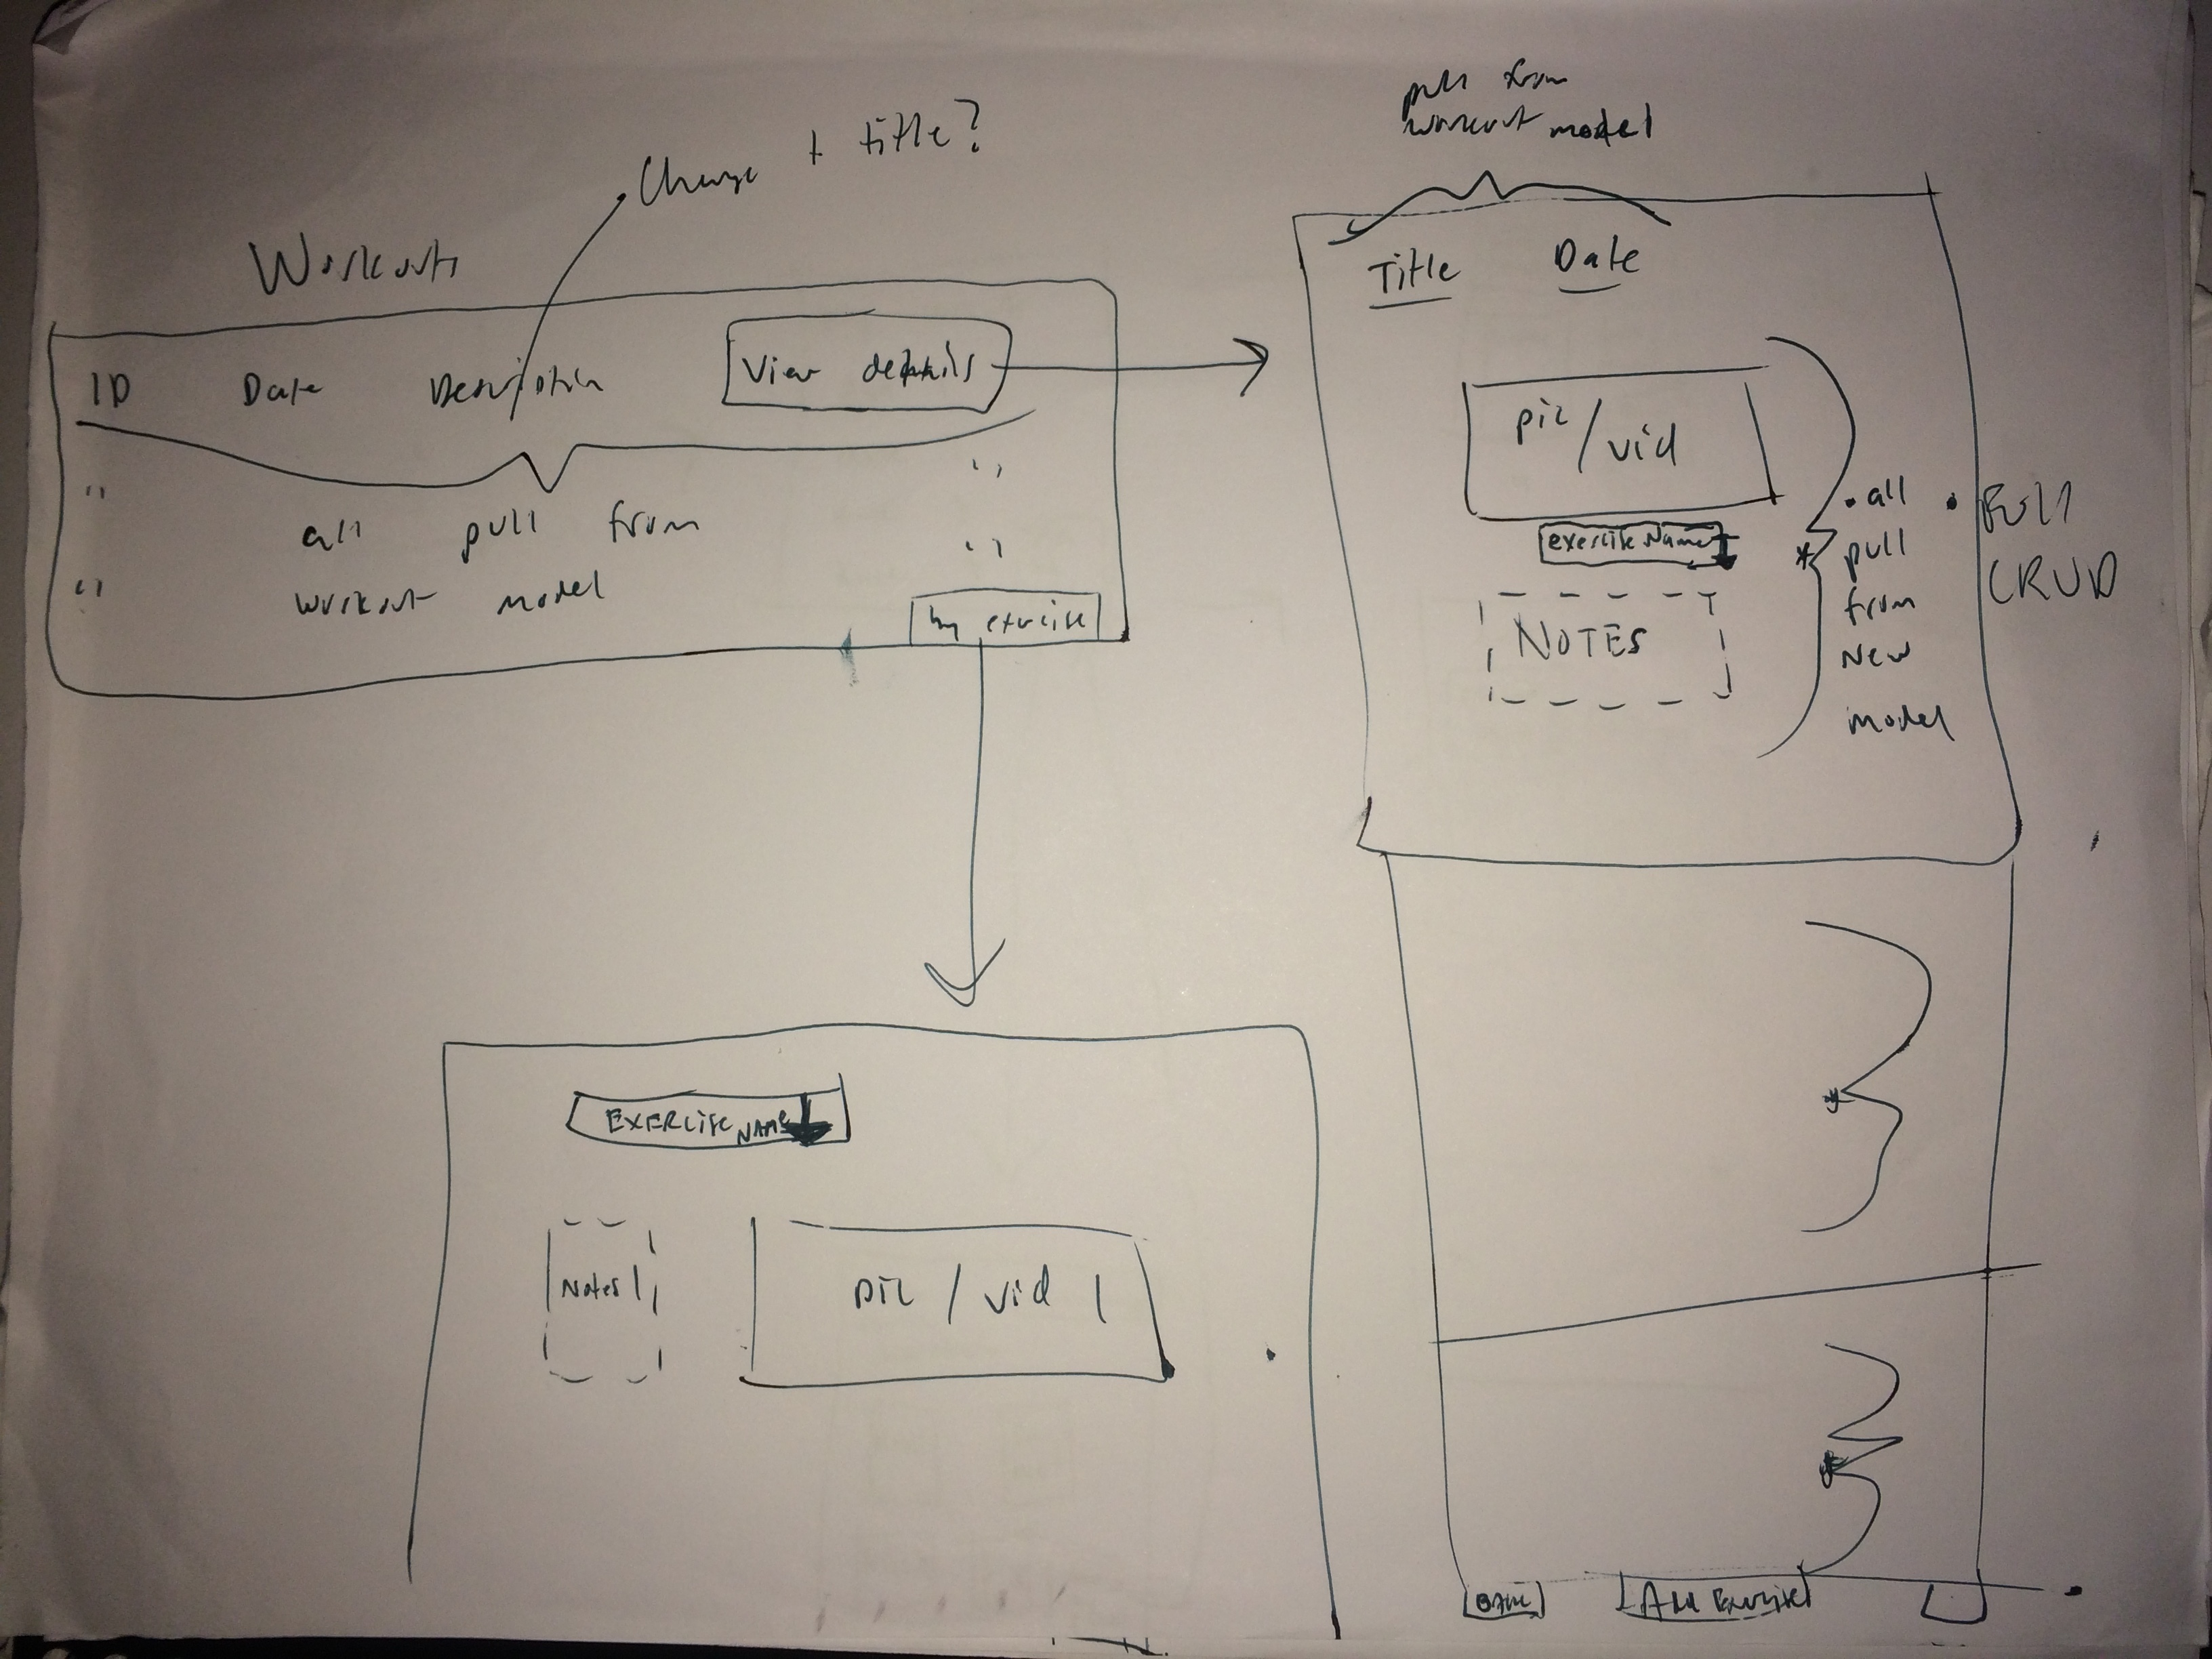 Change + title?
Workouts
ID Date Description View details
" "
all pull from
"
" workout model
by exercise
pull from
workout model
Title Date
pic / vid
exercise Name
NOTES
* • all
pull
from
New
model
• Full
CRUD
EXERCISE NAME
Notes
pic / vid
BACK Add Exercise